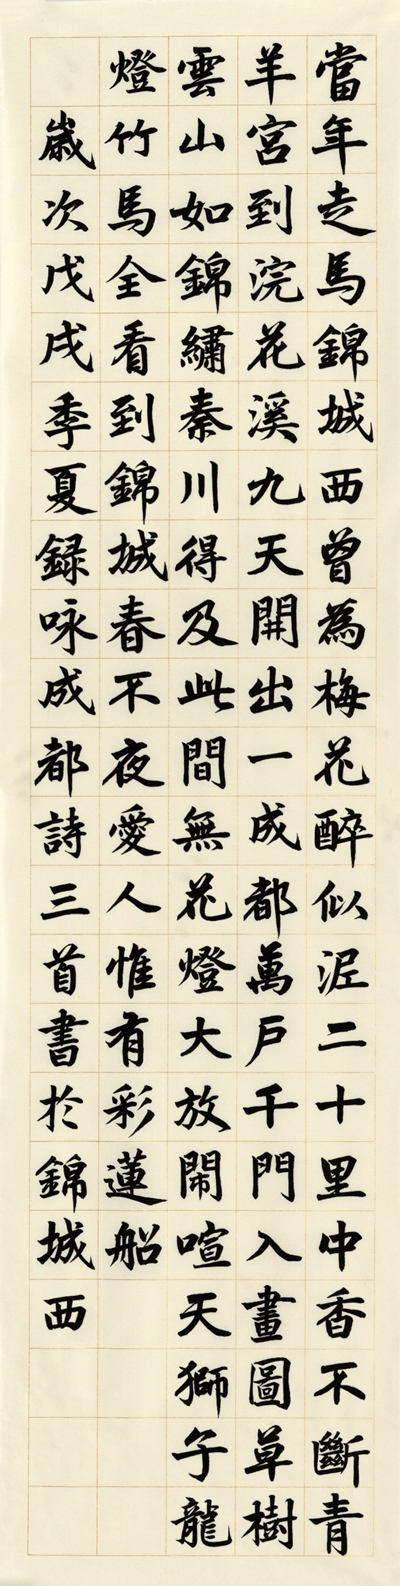 當年走馬錦城西曾為梅花醉似泥二十里中香不斷青
羊宮到浣花溪九天開出一成都萬戶千門入畫圖草樹
雲山如錦繡秦川得及此間無花燈大放鬧喧天獅子龍
燈竹馬全看到錦城春不夜愛人惟有彩蓮船
歲次戊戌季夏録咏成都詩三首書於錦城西